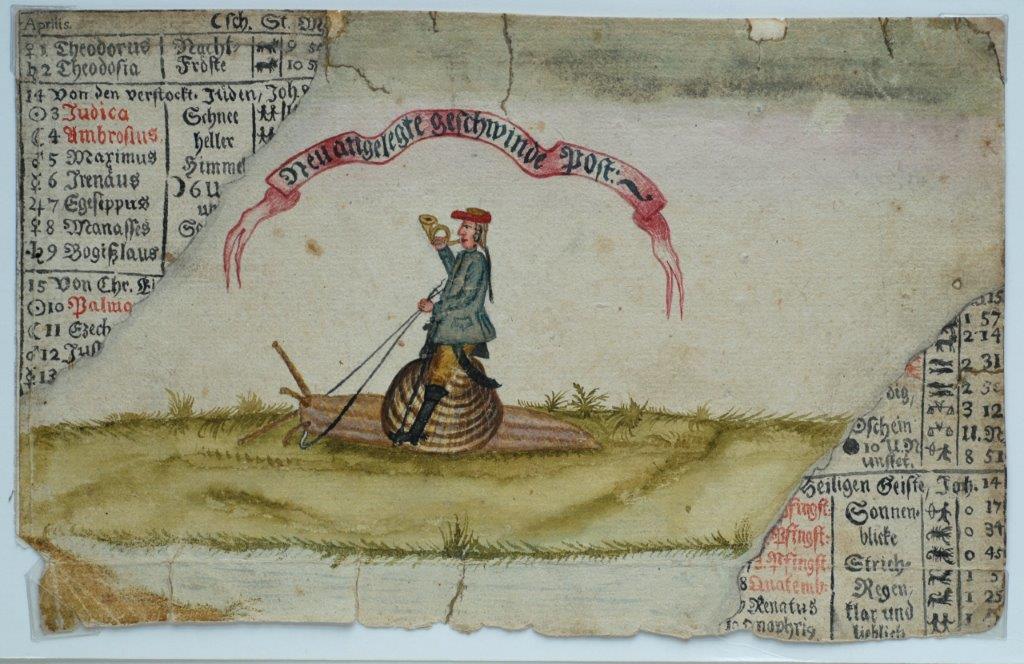 Aprilis. Csch. St. M
♀ 1 Theodorus Nacht- 9 5
♄ 2 Theodosia Fröste 10 5
14 Von den verstockt. Jüden, Joh 8
☉ 3 Judica Schnee
☾ 4 Ambrosius. heller
♂ 5 Maximus Himmel
☿ 6 Irenäus ☽ 6 U
♃ 7 Egesippus
♀ 8 Manasses
♄ 9 Bogißlaus
15 Von Chr. Ei
☉ 10 Palmo
☾ 11 Ezech
♂ 12 Jus
☿ 13
Neu angelegte geschwinde Post:
15
1 57
2 14
2 31
dig, 3 12
Oschein U. N
● 10 U. N 8 51
unstet.
Heiligen Geiste, Joh. 14
Pfingst. Sonnen- 0 17
Pfingst: blicke 0 34
3. Pfingst. Strich- 0 45
8 Quatemb. Regen, 1 5
9 Renatus klar und 1 25
lieblich